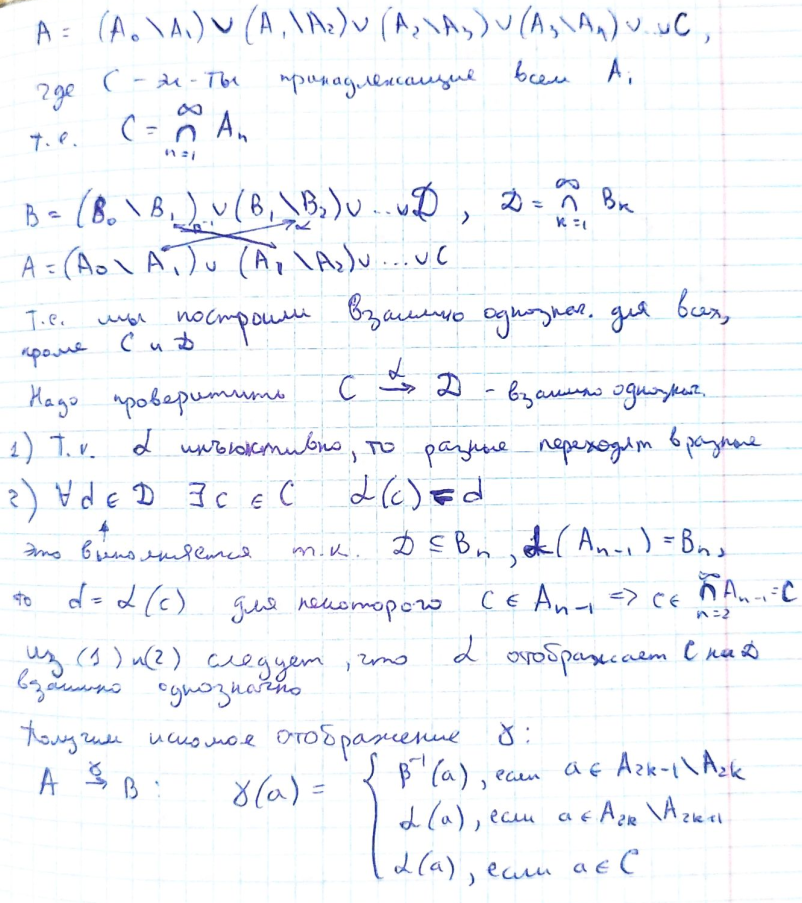 A = (A₀ \ A₁) ∪ (A₁ \ A₂) ∪ (A₂ \ A₃) ∪ (A₃ \ A₄) ∪ ... ∪ C,
где C – эл-ты принадлежащие всем Aᵢ
т.е. C = ∩_{n=1}^{∞} Aₙ
B = (B₀ \ B₁) ∪ (B₁ \ B₂) ∪ ... ∪ D, D = ∩_{k=1}^{∞} Bₖ
A = (A₀ \ A₁) ∪ (A₁ \ A₂) ∪ ... ∪ C
Т.е. мы построили взаимно однознач. для всех,
кроме C и D
Надо проверитить C →^α D – взаимно однознач.
1) Т.к. α инъективно, то разные переходят в разные
2) ∀ d ∈ D ∃ c ∈ C α(c) = d
это выполняется т.к. D ⊆ Bₙ, α(Aₙ₋₁) = Bₙ,
то d = α(c) для некоторого c ∈ Aₙ₋₁ => c ∈ ∩_{n=2}^{∞} Aₙ₋₁ = C
из (1) и (2) следует, что α отображает C на D
взаимно однозначно
Получим искомое отображение γ:
A →^γ B: γ(a) = { β⁻¹(a), если a ∈ A₂ₖ₋₁ \ A₂ₖ
α(a), если a ∈ A₂ₖ \ A₂ₖ₊₁
α(a), если a ∈ C